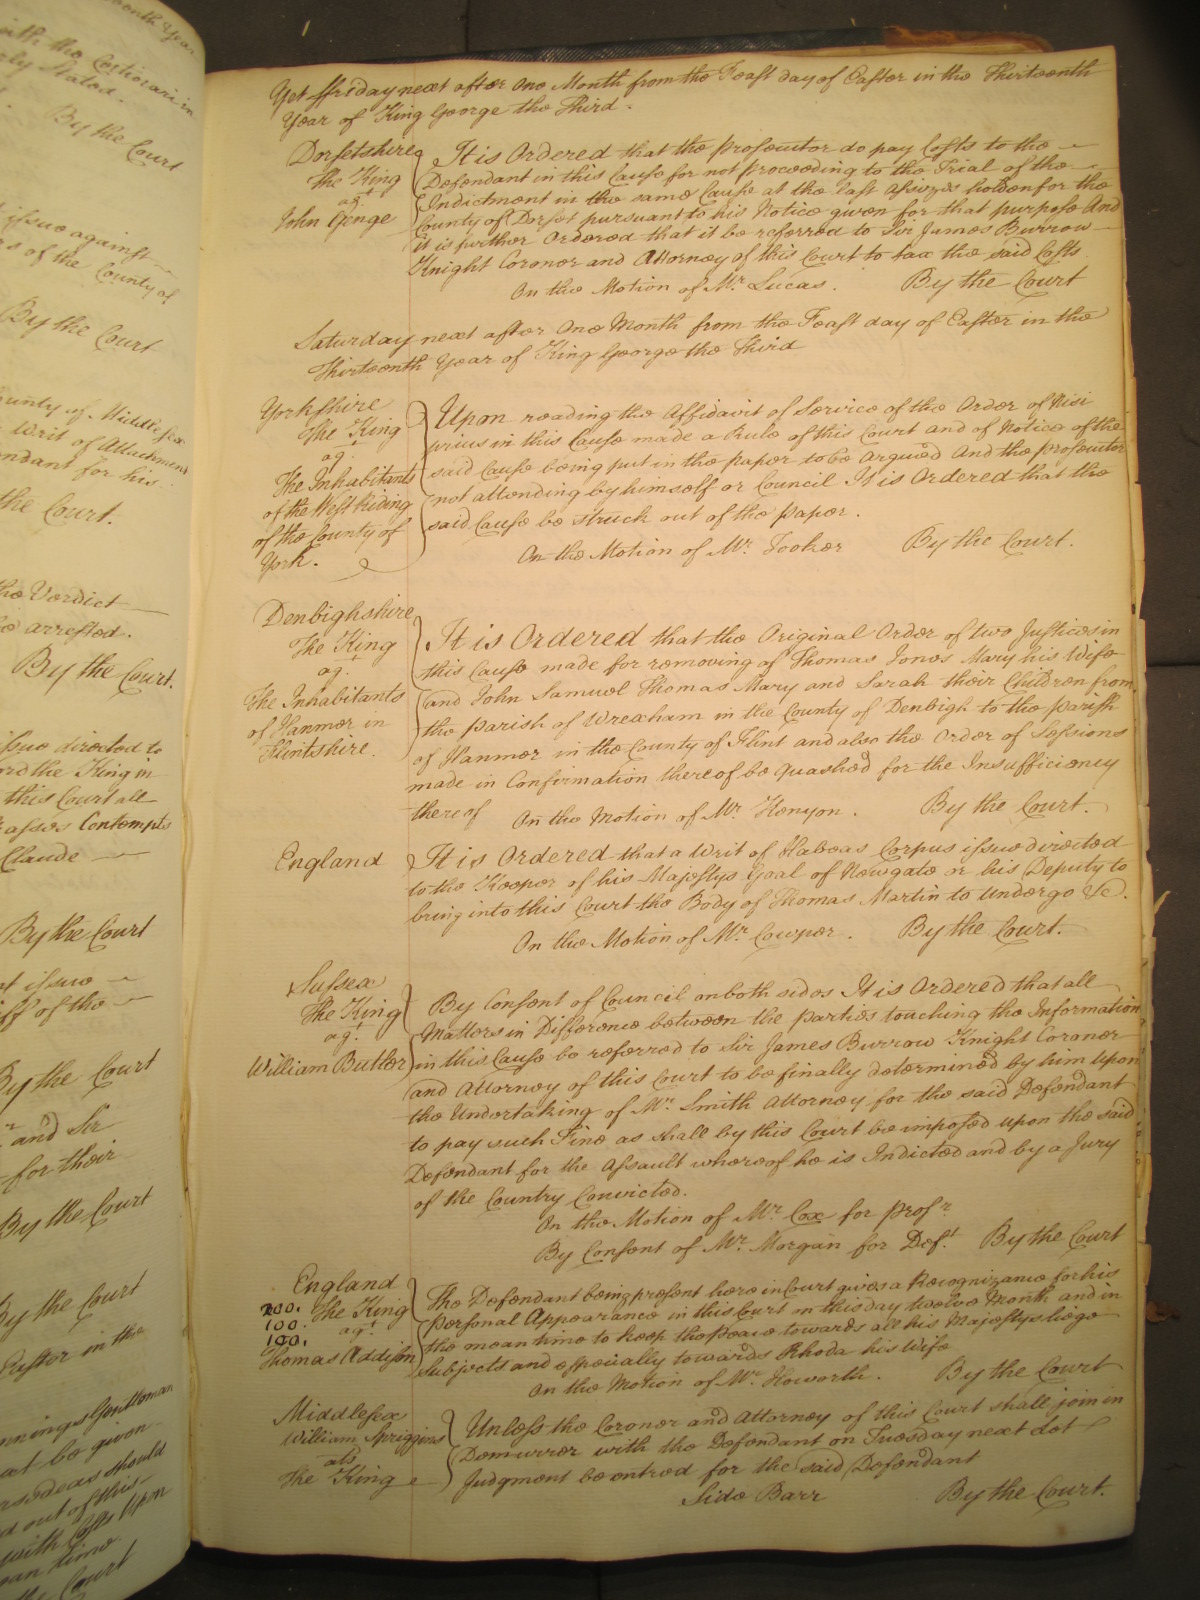 onth Year
ith the Certiorari in
rly Stated.
By the Court
issue against
rs of the County of
By the Court
ounty of Middlesex
Writ of Attachment
ondant for his
the Court.
the Verdict
be arrested.
By the Court.
issue directed to
ord the King in
this Court all
Contempts
Claude
By the Court
issue
iff of the
By the Court
and Sir
for their
By the Court
By the Court
Easter in the
Gentleman
at be given
should
d out of this
with Costs Upon
ean time
the Court
Yet ffriday next after One Month from the Feast day of Easter in the Thirteenth
Year of King George the Third.
Dorsetshire
The King
agt
John Genge
It is Ordered that the Prosecutor do pay Costs to the
Defendant in this Cause for not proceeding to the Trial of the
Indictment in the same Cause at the last Assizes holden for the
County of Dorset pursuant to his Notice given for that purpose And
it is further Ordered that it be referred to Sir James Burrow
Knight Coroner and Attorney of this Court to tax the said Costs
On the Motion of Mr. Lucas. By the Court
Saturday next after One Month from the Feast day of Easter in the
Thirteenth Year of King George the Third
Yorkshire
The King
agt
The Inhabitants
of the West Riding
of the County of
York.
Upon reading the Affidavit of Service of the Order of Nisi
prius in this Cause made a Rule of this Court and of Notice of the
said Cause being put in the paper to be argued And the prosecutor
not attending by himself or Council It is Ordered that the
said Cause be struck out of the paper.
On the Motion of Mr. Tooker By the Court.
Denbighshire
The King
agt
The Inhabitants
of Hanmer in
Flintshire.
It is Ordered that the Original Order of two Justices in
this Cause made for removing of Thomas Jones Mary his Wife
and John Samuel Thomas Mary and Sarah their Children from
the parish of Wrexham in the County of Denbigh to the parish
of Hanmer in the County of Flint and also the Order of Sessions
made in Confirmation thereof be quashed for the Insufficiency
thereof On the Motion of Mr. Kenyon. By the Court.
England
It is Ordered that a Writ of Habeas Corpus issue directed
to the Keeper of his Majestys Goal of Newgate or his Deputy to
bring into this Court the Body of Thomas Martin to undergo &c.
On the Motion of Mr. Cowper. By the Court.
Sussex
The King
agt.
William Butler
By Consent of Council on both sides It is Ordered that all
Matters in Difference between the parties touching the Information
in this Cause be referred to Sir James Burrow Knight Coroner
and Attorney of this Court to be finally determined by him upon
the Undertaking of Mr. Smith Attorney for the said Defendant
to pay such Fine as shall by this Court be imposed upon the said
Defendant for the Assault whereof he is Indicted and by a Jury
of the Country Convicted.
On the Motion of Mr. Cox for Prosr.
By Consent of Mr. Morgan for Deft. By the Court
England
200. The King
100. agt.
100.
Thomas Addison
The Defendant being present here in Court gives a Recognizance for his
personal Appearance in this Court on this day twelve Month and in
the mean time to keep the peace towards all his Majestys liege
Subjects and especially towards Rhoda his Wife
On the Motion of Mr. Howorth. By the Court
Middlesex
William Spriggins
als
The King
Unless the Coroner and Attorney of this Court shall join in
Demurrer with the Defendant on Tuesday next let
Judgment be entred for the said Defendant
Side Barr By the Court.